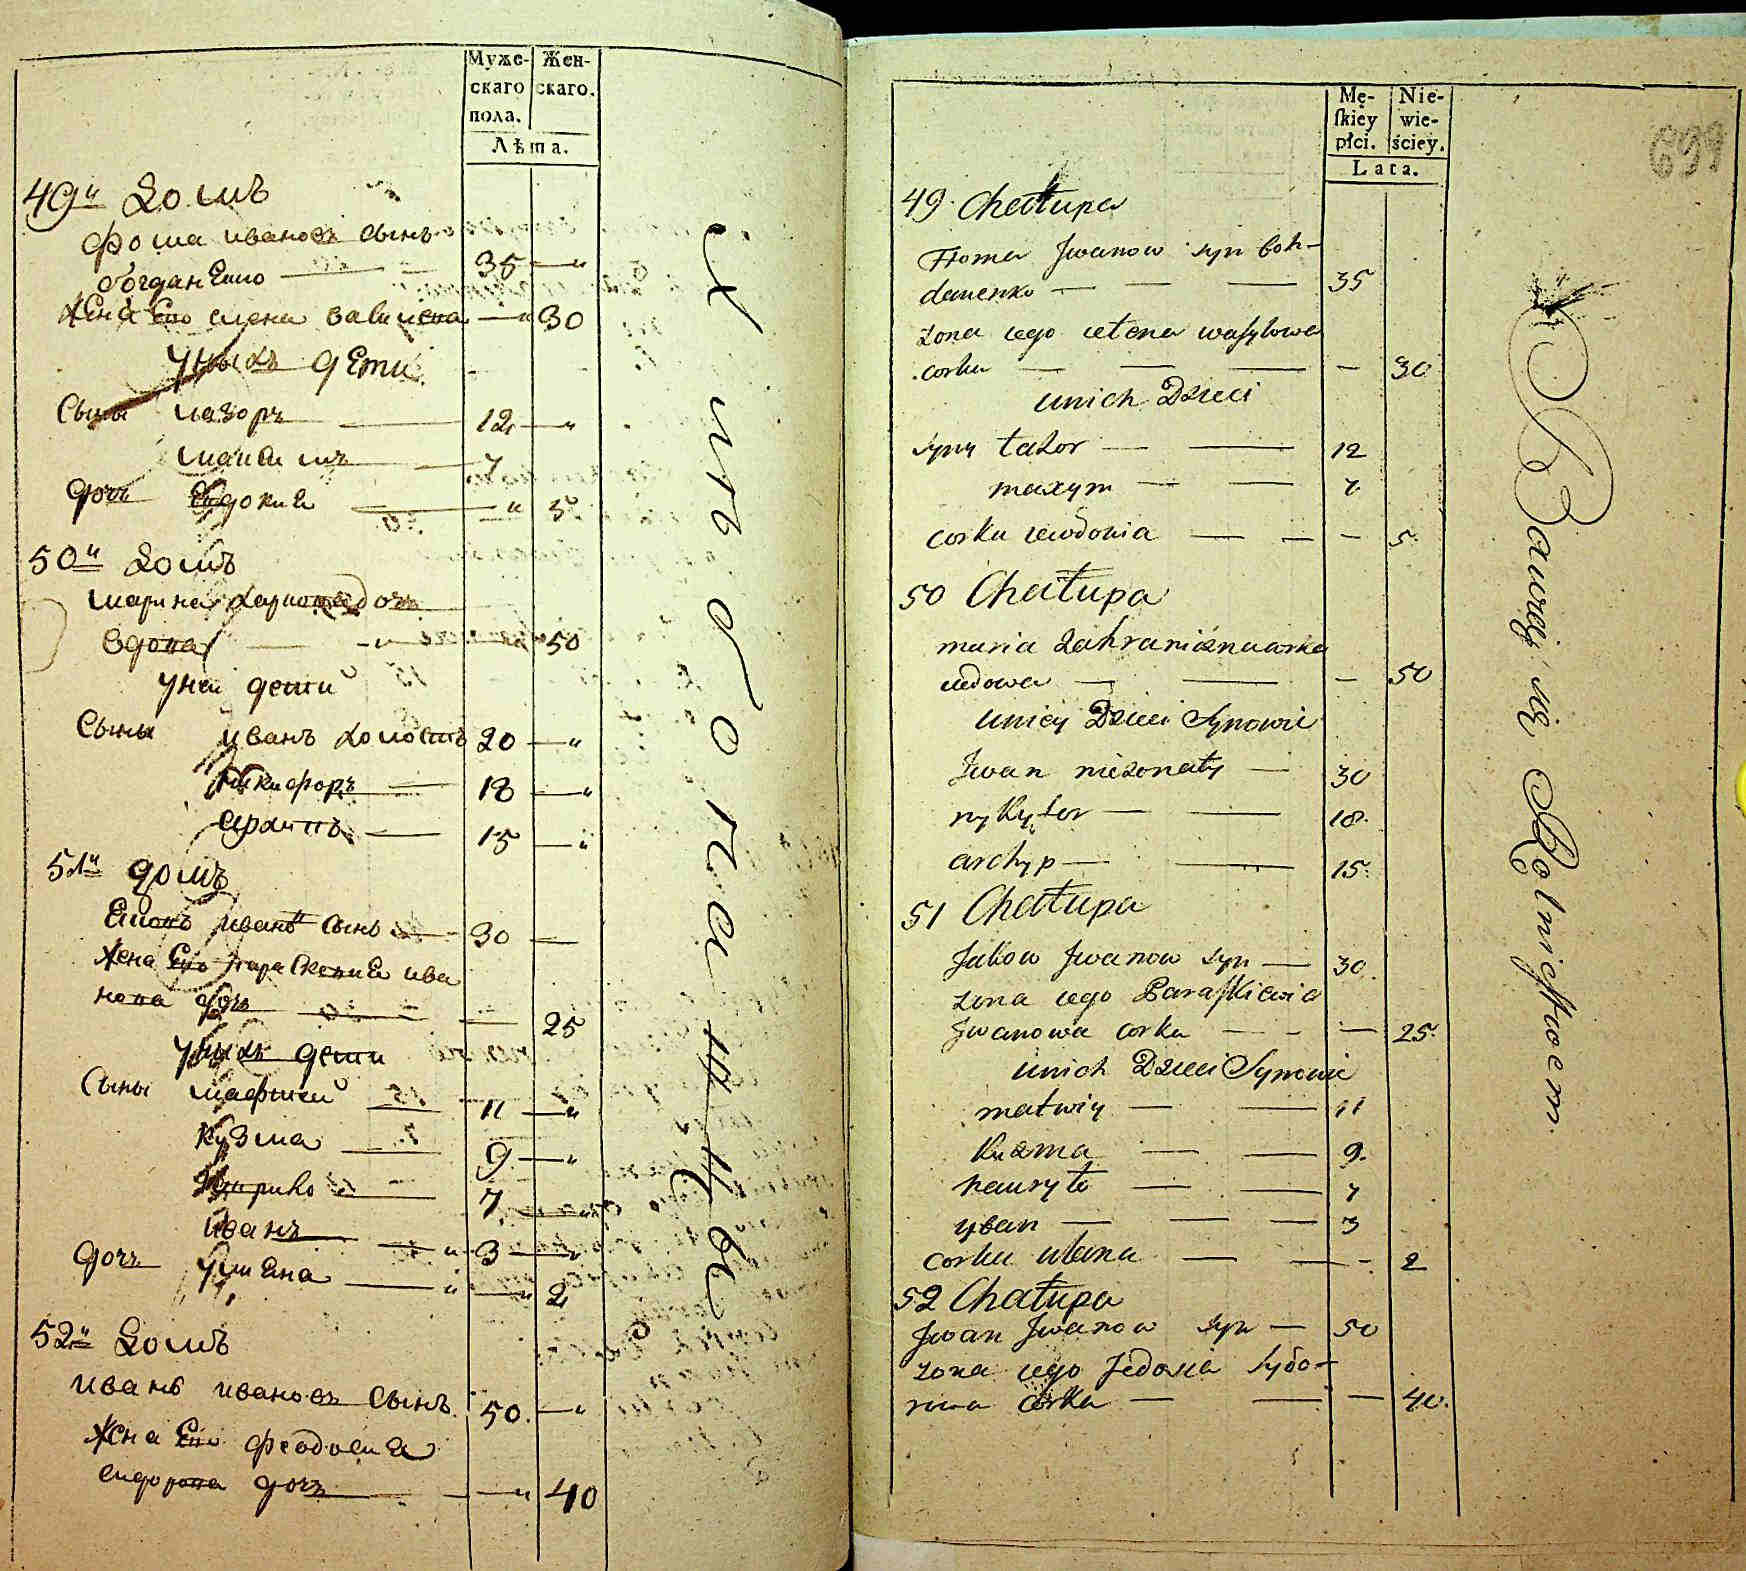 Муже-
скаго
пола.
Жен-
скаго.
Лѣта.
49й домъ
фома ивановъ сынъ
богданенко 35
жена Его елена василиева 30
уныхъ дети
Сыны лазоръ 12
максимъ 7
дочь Евдокия 5
50й домъ
марина дочь
вдова 50
уней дети
Сыны иванъ холостъ 20
никифоръ 18
архипъ 15
51й домъ
иванъ сынъ 30
жена Его параскевия ива
нова дочь 25
уныхъ дети
Сыны матфей 11
кузма 9
7
иванъ 3
дочь улиена 2
52й домъ
иванъ ивановъ сынъ 50
жена Его феодосия
сидорова дочь 40
Хлѣбопашцы
Mę-
ſkiey
płci.
Nie-
wie-
ściey.
Lata.
699
49 Chałupa
Homa Jwanow syn boh-
danenko 35
zona iego ułena wasylowa
corka 30
unich Dzieci
syny łazor 12
maxym 7
corka iewdonia 5
50 Chałupa
maria
wdowa 50
uniey Dzieci Synowie
Jwan niezonaty 30
nykyfor 18
archyp 15
51 Chałupa
Jakow Jwanow syn 30
zona iego Paraſkiewia
Jwanowa corka 25
unich Dzieci Synowie
matwiy 11
Kuzma 9
hawryło 7
yvan 3
corka ulana 2
52 Chałupa
Jwan Jwanow syn 50
zona iego Fedosia Sydo-
rowa corka 40
Bawiący się Rolnictwem